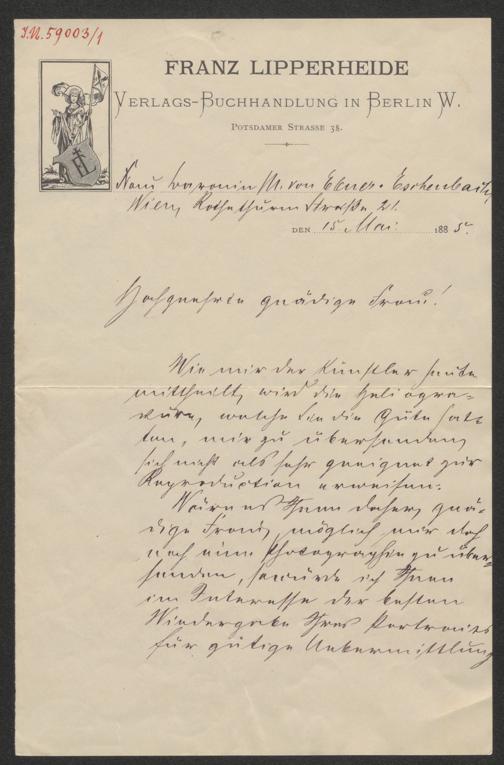 I.N. 59003/1
FRANZ LIPPERHEIDE
VERLAGS-BUCHHANDLUNG IN BERLIN W.
POTSDAMER STRASSE 38.
FL
Frau Baronin M. von Ebner-Eschenbach,
Wien, Rothethurm Straße 21.
DEN 15 Mai 1885.
Hochgeehrte gnädige Frau!
Wie mir der Künstler heute
mittheilt, wird die Heliogra=
vure, welche Sie die Güte hat=
ten, mir zu übersenden,
sich nicht als sehr geeignet zur
Reproduction erweisen.
Wäre es Ihnen daher, gnä=
dige Frau, möglich mir doch
noch eine Photographie zu über=
senden, so würde ich Ihnen
im Interesse der besten
Wiedergabe Ihres Portraits
für gütige Uebermittlung